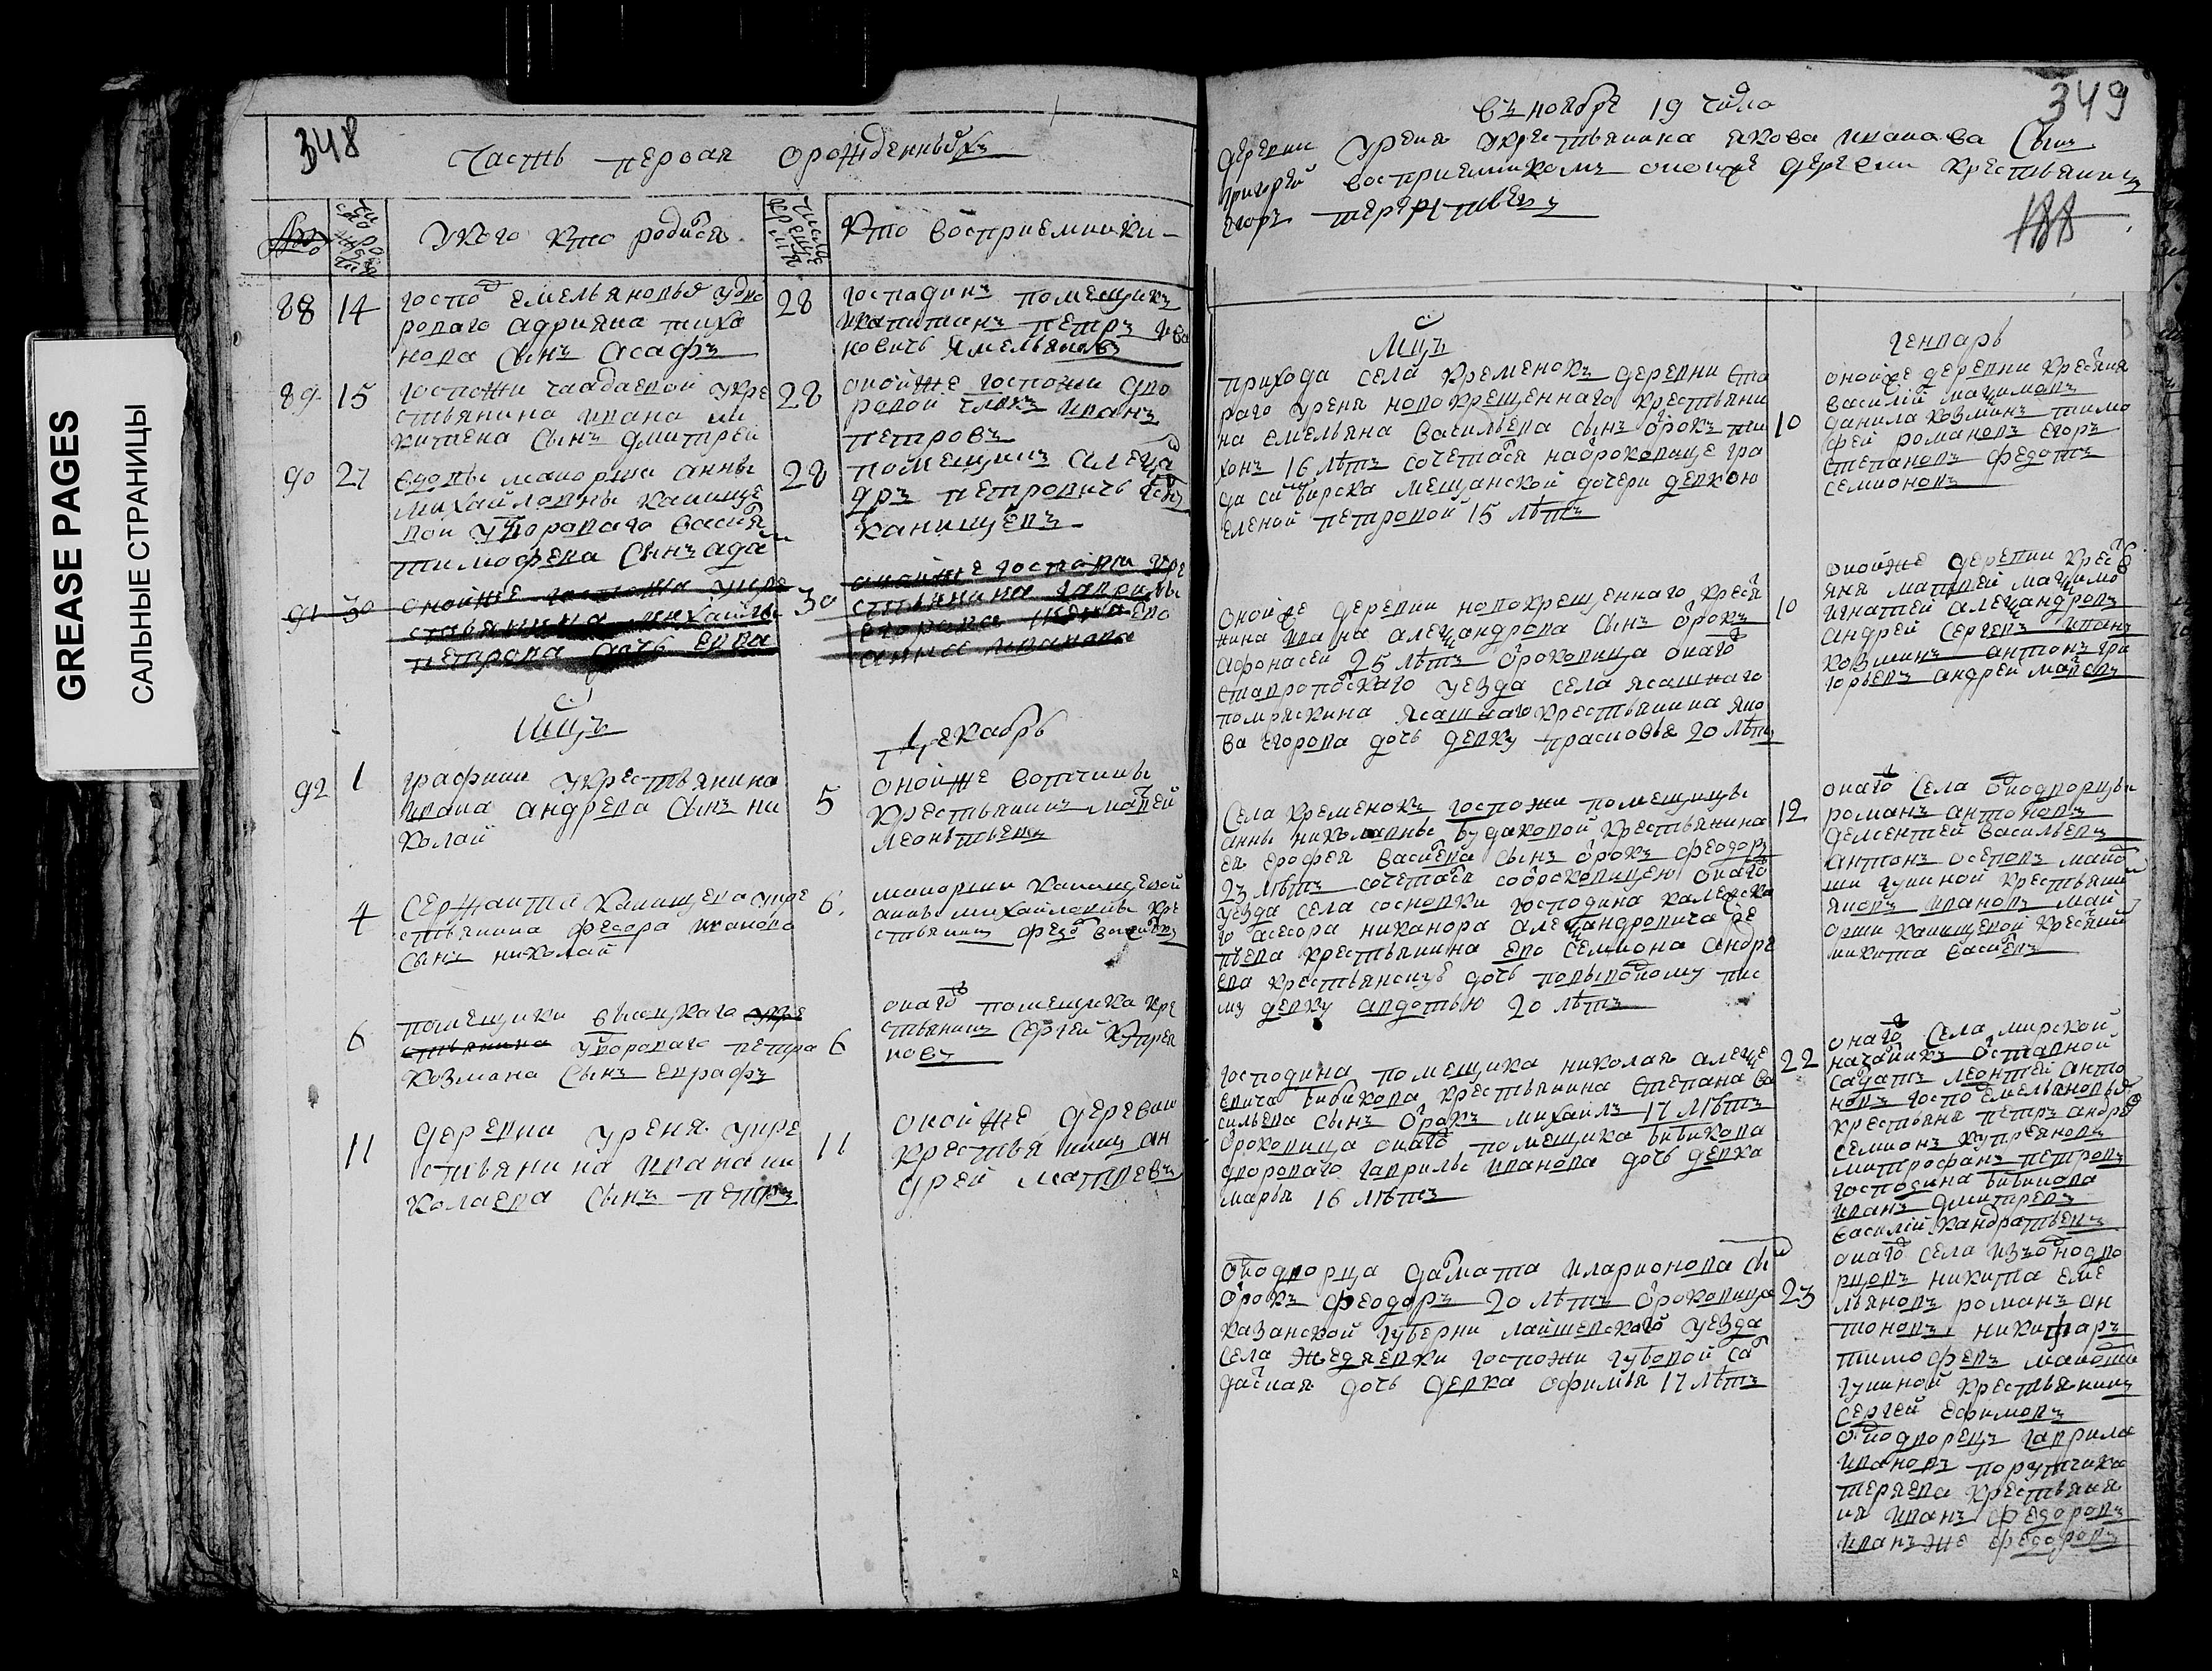 GREASE PAGES
САЛЬНЫЕ СТРАНИЦЫ
348
Часть первая о рожденныхъ
У кого кто родился
Кто восприемники
88 14 28
госпо Емельяновыхъ у дво
роваго Адрияна Тихо
нова сынъ Асафъ
господинъ помещикъ
капитанъ Петръ Ива
новичь Ямельяновъ
89 15 28
госпожи Чаадаевой у кре
стьянина Ивана ни
китена сынъ Дмитрей
оной же госпожи дво
ровой члвкъ Иванъ
Петровъ
90 27 28
вдовы маиорши Анны
Михайловны Канище
вой у двороваго Васил
Тимофева сынъ Ада
помещикъ Алеѯа
дръ Петровичь
Канищевъ
91 30 30
оной же госпожи у кре
стьянина Михайлы
Петрова дочь Евва
оной же госпожи кре
стьянина Гаврилы
Егорова жена ево
Анна Иванова
Мцъ Декабрь
92 1 5
графини у крестьянина
Ивана Андрева сынъ Ни
колай
оной же вотчины
крестьянинъ Матвей
Леонтьевъ
4 6
сержанта Канищева у кре
стьянина Федора Иванова
сынъ Николай
маиорши Канищевой
Анны Михайловны кре
стьянинъ Федо Василевъ
6 6
помещика Высоцкаго у кре
стьянина у двороваго Петра
Козмина сынъ Евграфъ
онаго помещика кре
стьянинъ Сергей Купрея
новъ
11 11
деревни Уреня у кре
стьянина Ивана Ни
колаева сынъ Петръ
оной же деревни
крестьянинъ Ан
дрей Матвевъ
349
въ ноябре 19 числа
деревни Уреня у крестьянина Якова Иванова сынъ
Григорей восприемникомъ оной же деревни крестьянинъ
Егоръ Терентьевъ
188
Мцъ Генварь
прихода села Кременокъ деревни Ста
раго Уреня новокрещеннаго крестьяни
на Емельяна Васильева сынъ отрокъ Ти
хонъ 16 летъ сочетался на отроковице гра
да Симбирска мещанской дочери девкою
Еленой Петровой 15 летъ
10
оной же деревни крестьяня
Василий Маѯимовъ
Данила Козминъ Тимо
фей Романовъ Егоръ
Степановъ Федотъ
Семионовъ
оной же деревни новокрещеннаго крестья
нина Ивана Алеѯандрова сынъ отрокъ
Афонасей 25 летъ отроковица онаго
Ставропоскаго уезда села Ясашнаго
Помряскина ясашнаго крестьянина Яко
ва Егорова дочь девку Прасковья 20 летъ
10
оной же деревни крестья
яня Матвей Маѯимо
Игнатей Алеѯандровъ
Андрей Сергевъ Иванъ
Козминъ Антонъ Гри
горьевъ Андрей Матвевъ
села Кременокъ госпожи помещицы
Анны Николавны Будаковой крестьянина
ея Ерофея Василева сынъ отрокъ Феодоръ
23 летъ сочетался со отроковицею онаго
уезда села Сосновки господина калежска
го асесора Никанора Алеѯандровича Ле
пьева крестьянина ево Семиона Андре
ева крестьянскую дочь по выводному пис
му девку Авдотью 20 летъ
12
онаго села однодворцы
Романъ Антоновъ
Дементей Васильевъ
Антонъ Осеповъ маио
ши Гуниной крестьянин
Яковъ Ивановъ маи
орши Канищевой крестьянин
Никита Василевъ
господина помещика Николая Алеѯе
евича Бибикова крестьянина Степана Ва
сильева сынъ отрокъ Михайлъ 17 летъ
отроковица онаго помещика Бибикова
двороваго Гаврилы Иванова дочь девка
Марья 16 летъ
22
онаго села мирской
началникъ отставной
салдатъ Леонтей Анто
новъ госпо Емельяновыхъ
крестьяне Петръ Андре
Семионъ Купреяновъ
Митрофанъ Петровъ
господина Бибикова
Иванъ Дмитревъ
Василий Кандратьевъ
однодворца Далмата Иларионова сы
отрокъ Феодоръ 20 летъ отроковица
Казанской губерни Лаишевскаго уезда
села Жедяевки госпожи Губовой сал
дацкая дочь девка Офимья 17 летъ
23
онаго села изъ однодво
рцовъ Никита Еме
льяновъ Романъ Ан
тоновъ Никифаръ
Тимофевъ маиоши
Гуниной крестьянинъ
Сергей Ефимовъ
однодворецъ Гаврила
Ивановъ порутчика
Теряева крестьяня
ня Иванъ Федоровъ
Иванъ же Федоровъ